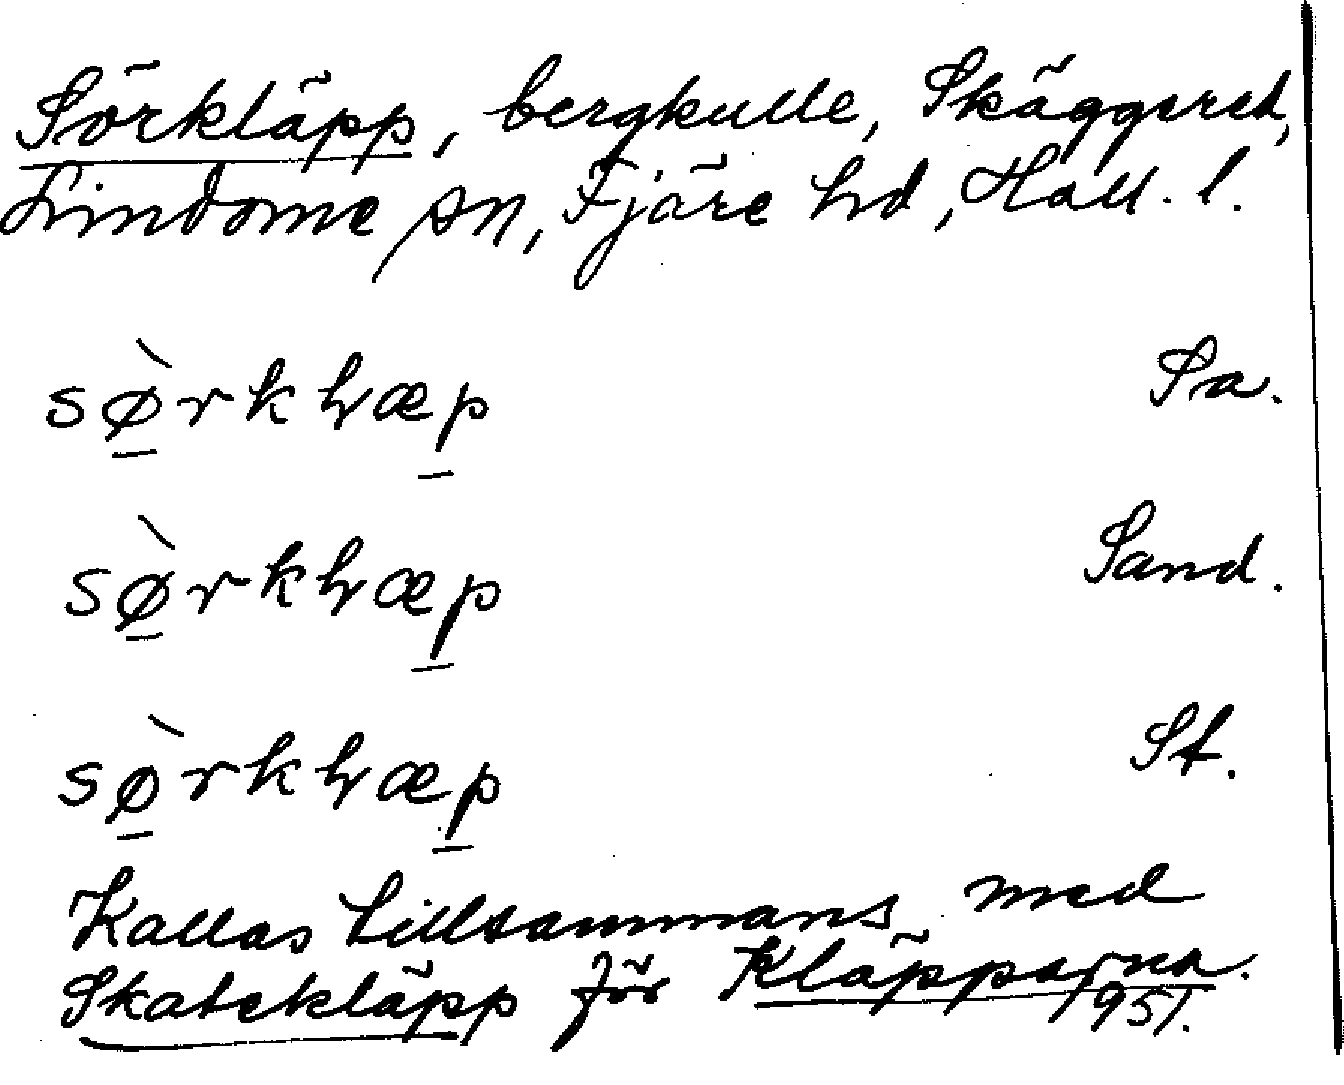 Sörkläpp, bergkulle, Skäggered,
Lindome sn, Fjäre hd, Hall. l.
sø̱̀rkhræp̱ Sa.
sø̱̀rkhræp̱ Sand.
sø̱̀rkhræp̱ St.
Kallas tillsammans med
Skatekläpp för Kläpparna.
1951.